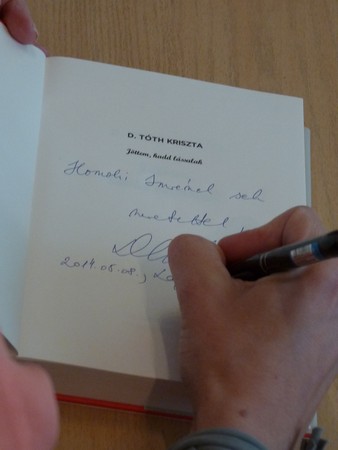 D. TÓTH KRISZTA
Jöttem, hadd lássalak
Homoki Imrénél sok
szeretettel
2014.05.08.,